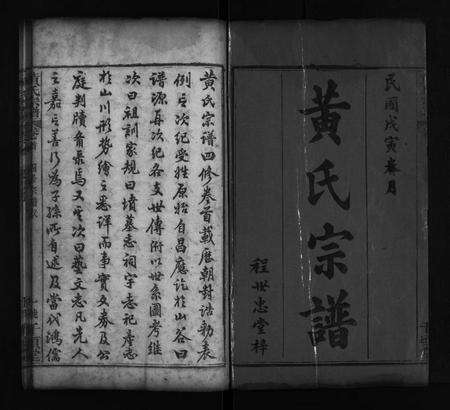 民國戊寅春月
黃氏宗譜
程世忠堂梓
黃氏宗譜四修卷首載歷朝封誥勅表
例之次紀受姓原始自昌應訖於山谷曰
譜源再次紀各支世傳術以世系圖考維
次曰祖訓家規曰墳墓志祠宇志祀產志
於山川形勢繪之悉詳而事實文券及公
庭判牘备彔焉又其次曰藝文志凡先人
之嘉言善行為子孫所自述及當代鴻儒